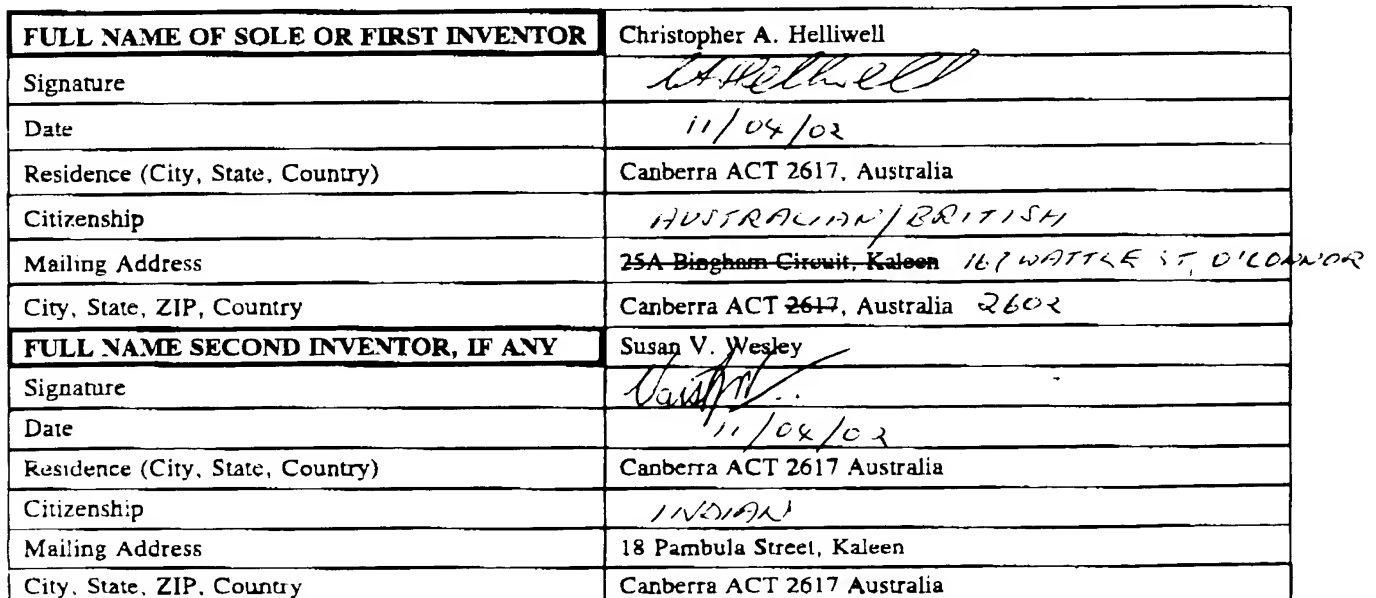 FULL NAME OF SOLE OR FIRST INVENTOR Christopher A. Helliwell
Signature CA Helliwell
Date 11/04/02
Residence (City, State, Country) Canberra ACT 2617, Australia
Citizenship AUSTRALIAN/BRITISH
Mailing Address 25A Bingham Circuit, Kaleen WATTLE ST, O'CONNOR
City, State, ZIP, Country Canberra ACT 2617, Australia 2602
FULL NAME SECOND INVENTOR, IF ANY Susan V. Wesley
Signature
Date 11/04/02
Residence (City, State, Country) Canberra ACT 2617 Australia
Citizenship INDIAN
Mailing Address 18 Pambula Street, Kaleen
City, State, ZIP, Country Canberra ACT 2617 Australia